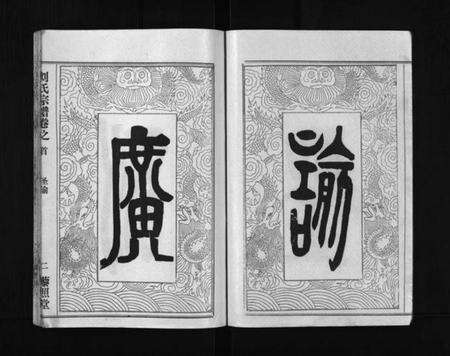 諭
廣
刘氏宗譜卷之首 圣諭 二 藜照堂